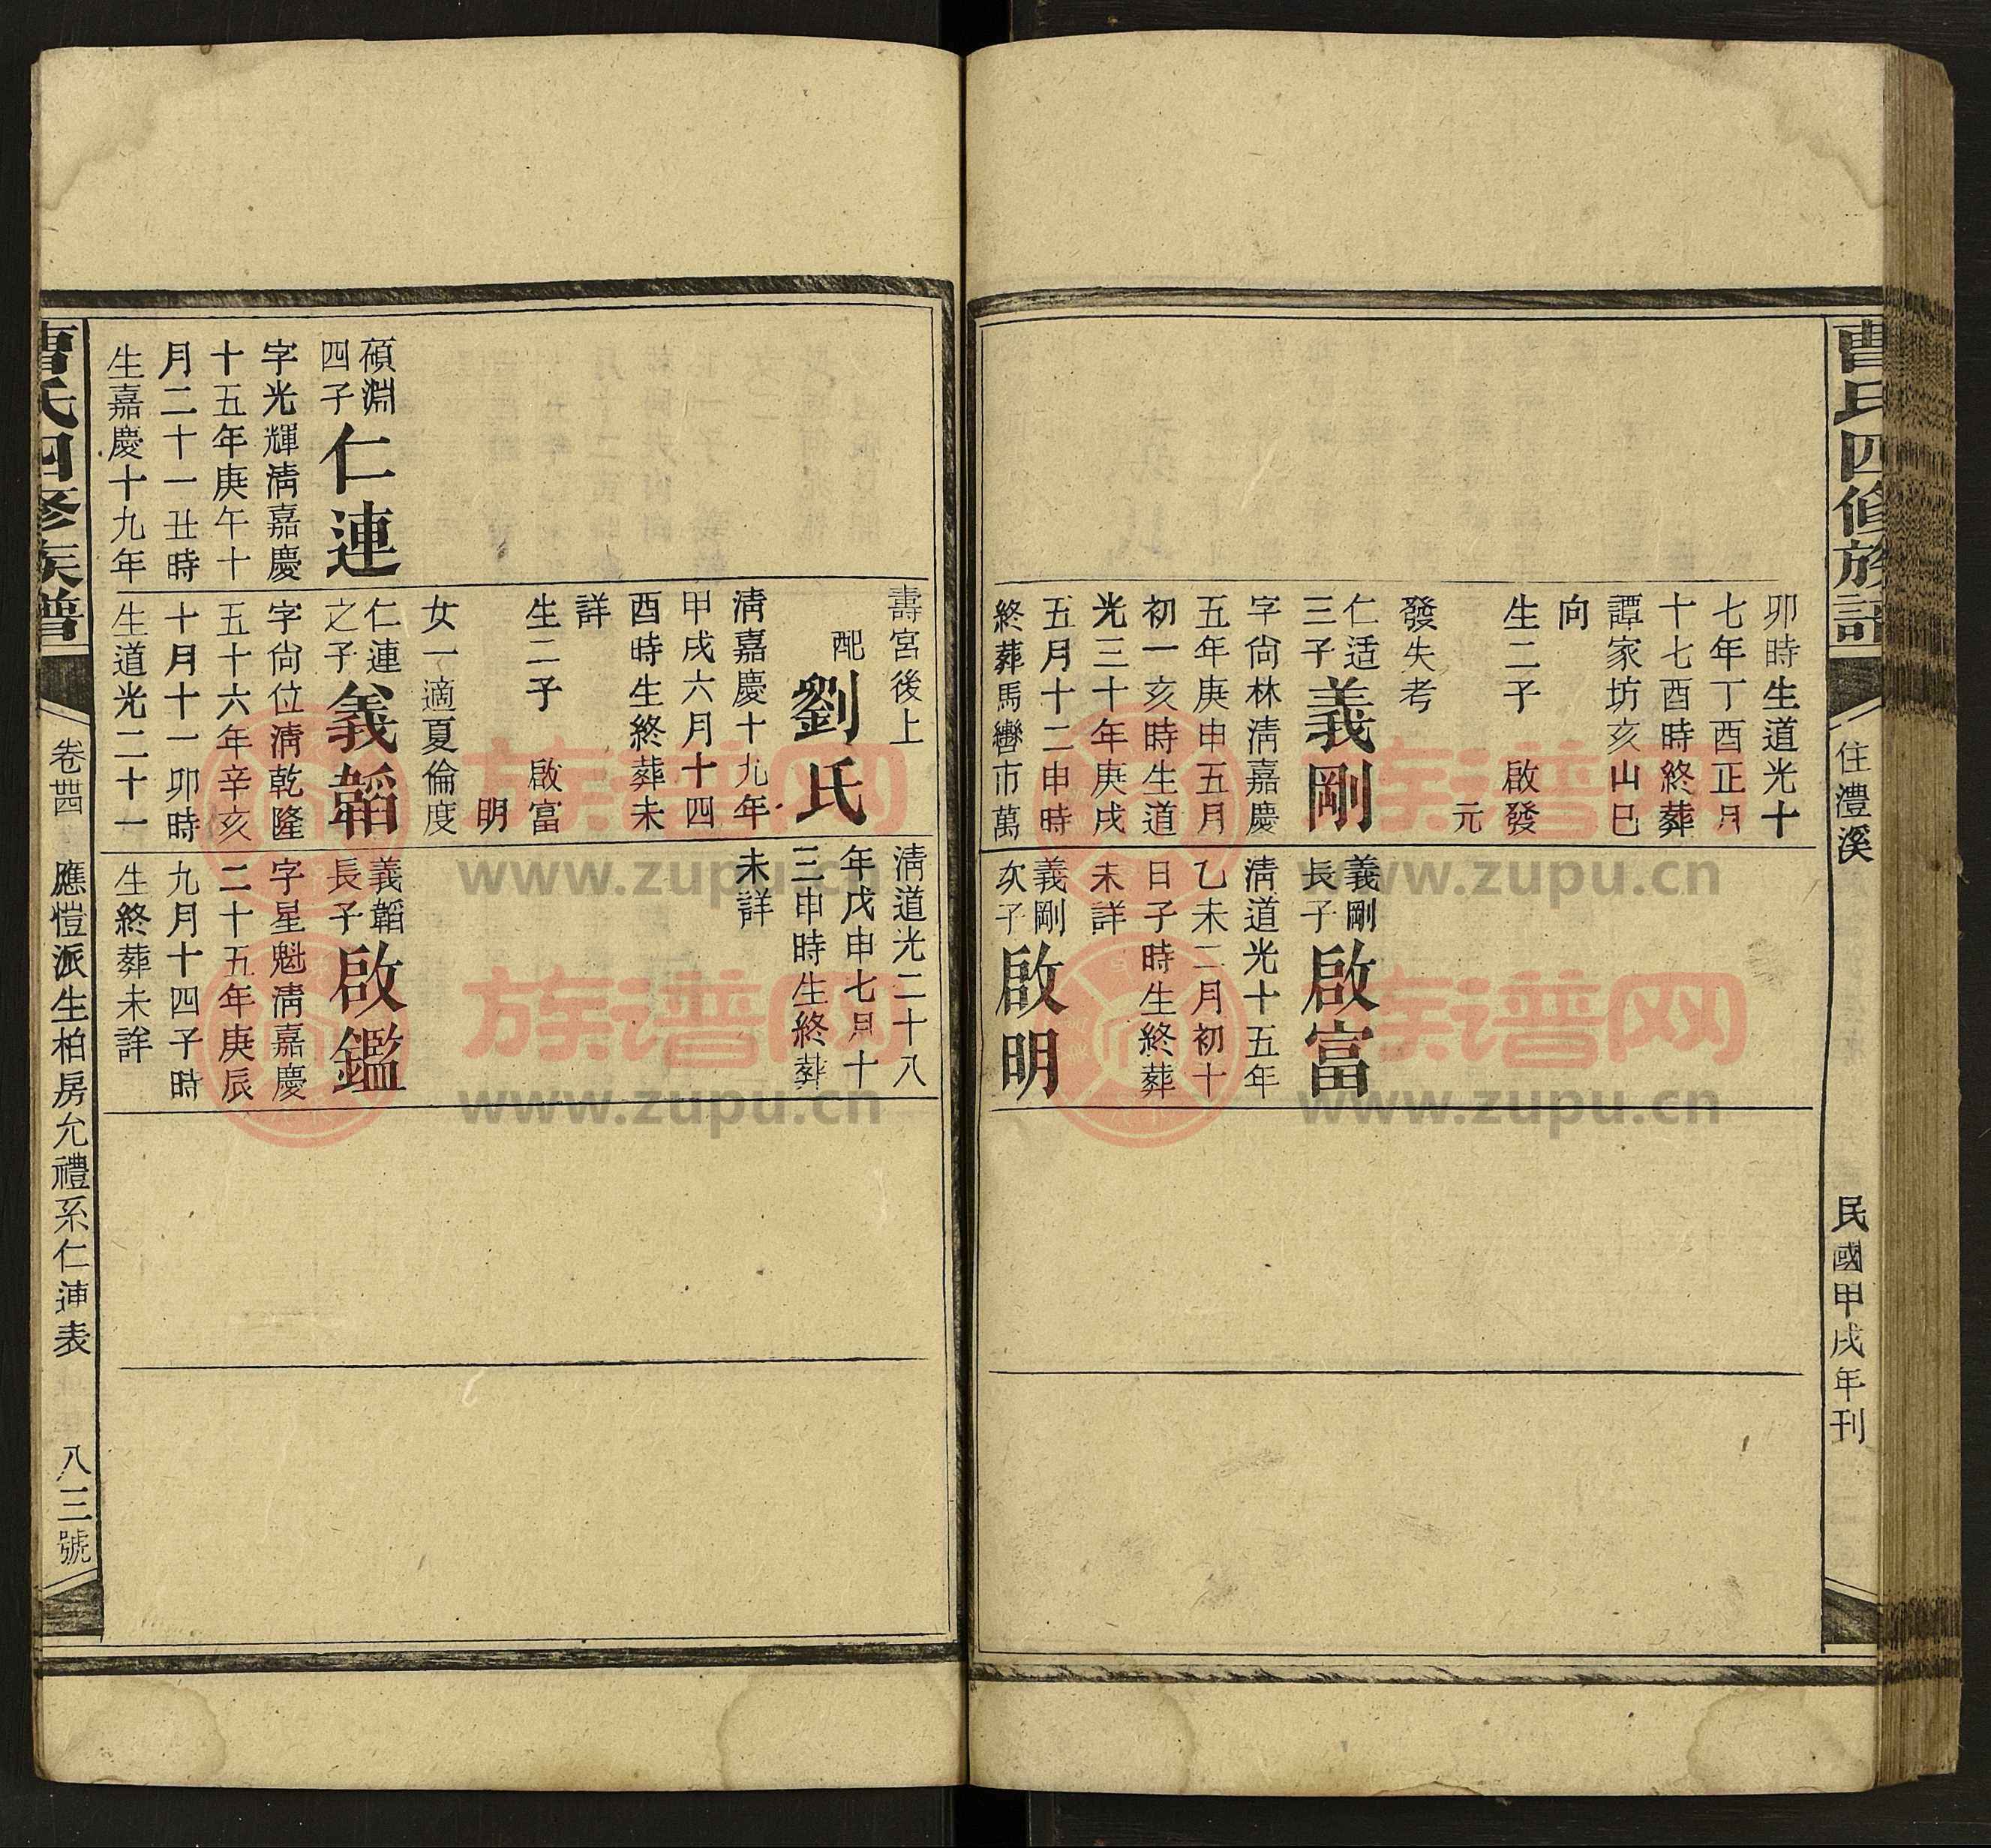 曹氏四修族譜
住澧溪
民國甲戌年刊
卯時生道光十
七年丁酉正月
十七酉時終葬
譚家坊亥山巳
向
生二子 啟發
元
發失考
仁适
三子
義剛
字尙林淸嘉慶
五年庚申五月
初一亥時生道
光三十年庚戌
五月十二申時
終葬馬轡市萬
義剛
長子
啟富
淸道光十五年
乙未二月初十
日子時生終葬
未詳
義剛
次子
啟明
壽宮後上
配
劉氏
淸嘉慶十九年
甲戌六月十四
酉時生終葬未
詳
生二子 啟富
明
女一適夏倫度
淸道光二十八
年戊申七月十
三申時生終葬
未詳
碩淵
四子
仁連
字光輝淸嘉慶
十五年庚午十
月二十一丑時
生嘉慶十九年
仁連
之子
義韜
字尙位淸乾隆
五十六年辛亥
十月十一卯時
生道光二十一
義韜
長子
啟鑑
字星魁淸嘉慶
二十五年庚辰
九月十四子時
生終葬未詳
曹氏四修族譜
卷四
應愷派生柏房允禮系仁連表
八三號
族谱网
www.zupu.cn
族谱网
www.zupu.cn
族谱网
www.zupu.cn
族谱网
www.zupu.cn